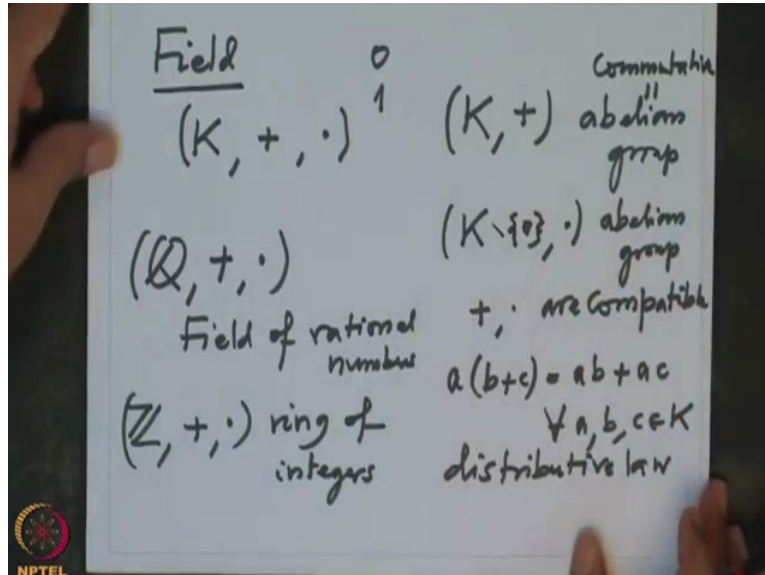 Field
0
1
(K, +, ·)
(ℚ, +, ·)
Field of rational
numbers
(ℤ, +, ·) ring of
integers
Commutative
॥
(K, +) abelian
group
(K∖{0}, ·) abelian
group
+, · are compatible
a(b+c) = ab + ac
∀ a, b, c ∈ K
distributive law
NPTEL